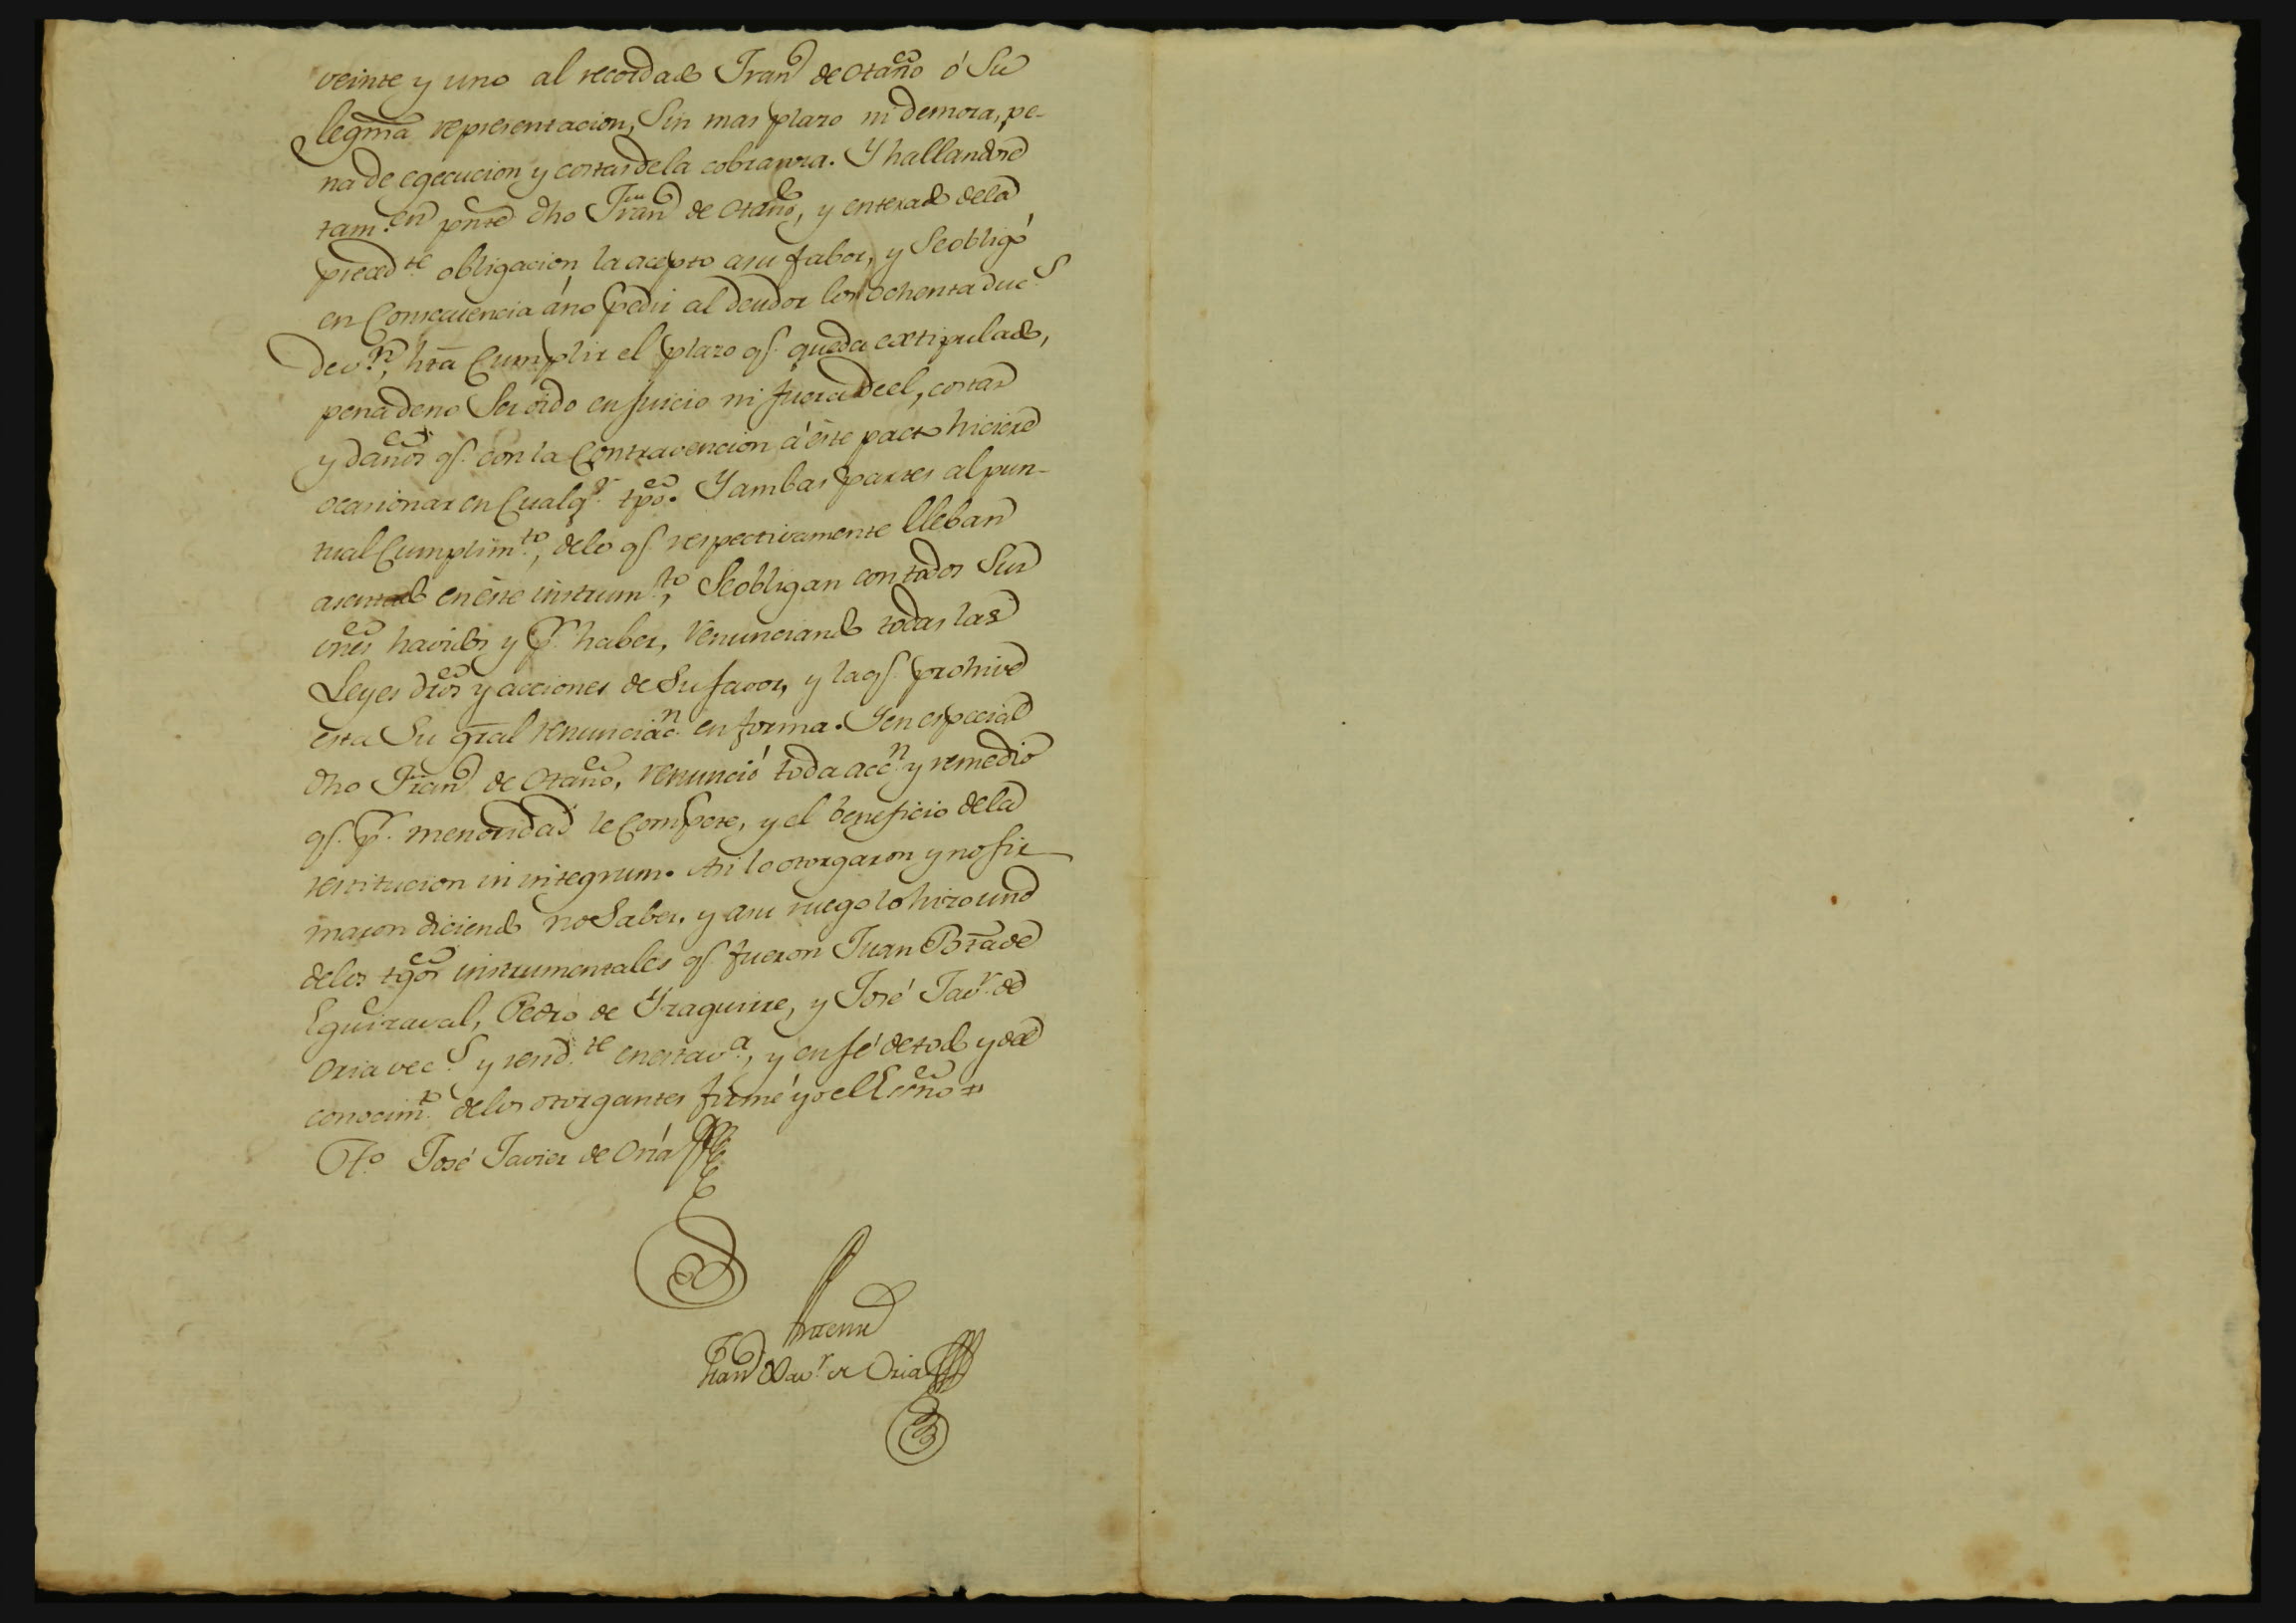 veinte y uno al recordado Fran.co de Otaño ó su
legma representacion, sin mas plazo ni demora, pe-
na de egecucion y costas de la cobranza. Y hallandose
tam.en pnte dho Fran.co de Otaño, y enterado de la
preced.te obligacion la acepto a su fabor, y se obligó
en consequencia á no pedir al deudor los ochenta duc.s
de v.n, hta cumplir el plazo q.e queda extipulado,
pena de no ser oido en juicio ni fuera de el, costas
y daños q.e con la contravencion á este pacto hiciere
ocasionar en cualq.r tpo. Y ambas partes al pun-
tual cumplim.to, de lo q.e respectivamente lleban
asentado en este instrum.to, se obligan con todos sus
vnes havidos y p.r haber, renunciando todas las
Leyes dros y acciones de su favor, y la q.e prohive
esta su gral renunciac.n en forma. Y en especial
dho Fran.co de Otaño, renunció toda acc.n y remedio
q.e p.r menoridad le compete, y el beneficio de la
restitucion in integrum. Asi lo otorgaron y no fir-
maron diciendo no saber, y a su ruego lo hizo uno
de los tgos instrumentales q.e fueron Juan Bta de
Eguizaval, Pedro de Yraguirre, y José Jav.r de
Oria vec.s y resid.te en esta v.a, y en fé de todo y de el
conocim.to de los otorgantes firmé yo el Esno
T.o José Javier de Oria
Antemi
Fran.co Xav.r de Oria